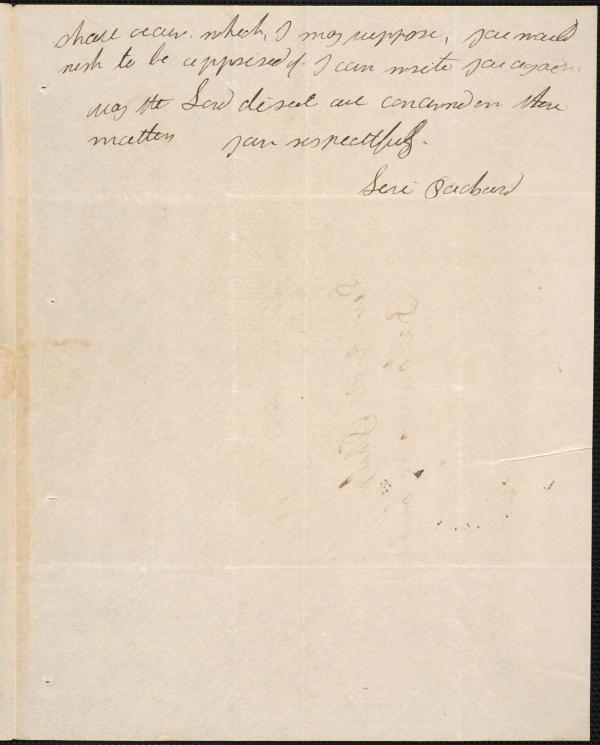 shall occur, which, I may suppose, you would
wish to be apprised of. I can write you again.
may the Lord direct all concerned in these
matters your respectfully.
Levi Packard